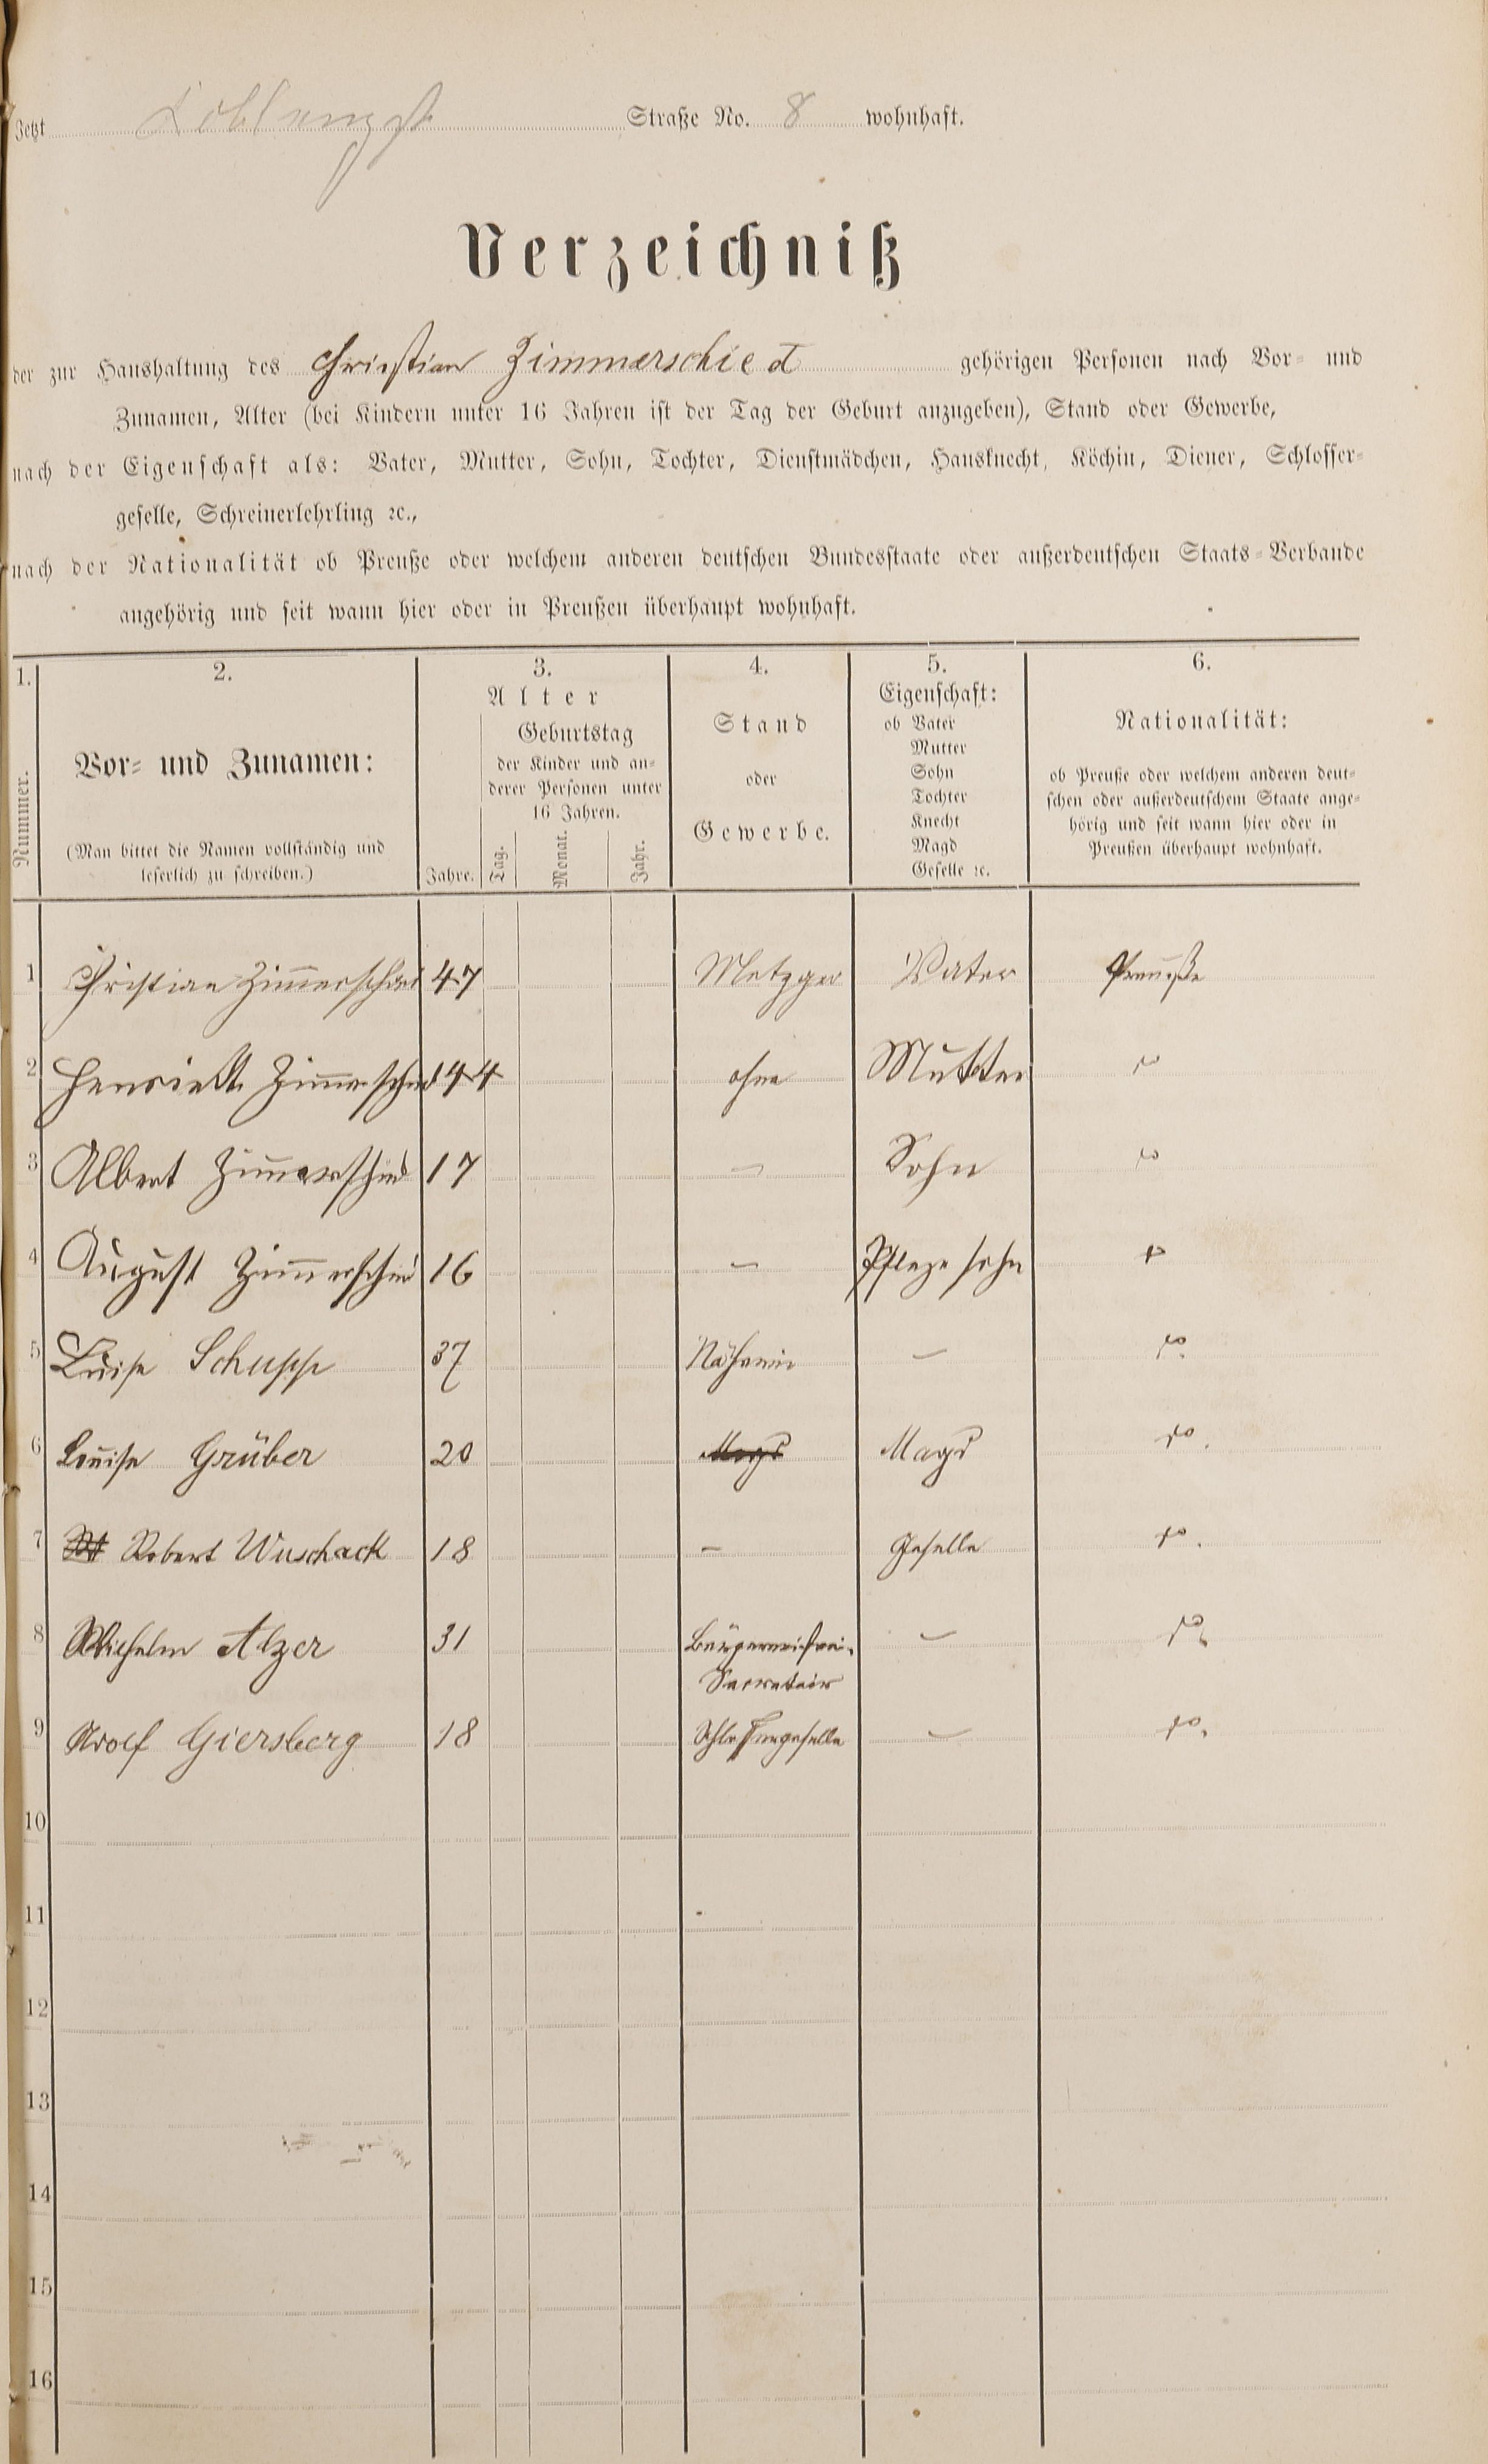 Jetzt Coblenzst Straße No. 8 wohnhaft.
Verzeichniß
der zur Haushaltung des Christian Zimmerschied gehörigen Personen nach Vor- und
Zunamen, Alter (bei Kindern unter 16 Jahren ist der Tag der Geburt anzugeben), Stand oder Gewerbe,
nach der Eigenschaft als: Vater, Mutter, Sohn, Tochter, Dienstmädchen, Hausknecht, Köchin, Diener, Schlosser-
geselle, Schreinerlehrling ꝛc.,
nach der Nationalität ob Preuße oder welchem anderen deutschen Bundesstaate oder außerdeutschen Staats-Verbande
angehörig und seit wann hier oder in Preußen überhaupt wohnhaft.
1. 2. 3. 4. 5. 6.
Nummer.
Vor- und Zunamen:
(Man bittet die Namen vollständig und
leserlich zu schreiben.)
Alter
Jahre.
Geburtstag
der Kinder und an-
derer Personen unter
16 Jahren.
Tag. Monat. Jahr.
Stand
oder
Gewerbe.
Eigenschaft:
ob Vater
Mutter
Sohn
Tochter
Knecht
Magd
Geselle ꝛc.
Nationalität:
ob Preuße oder welchem anderen deut-
schen oder außerdeutschem Staate ange-
hörig und seit wann hier oder in
Preußen überhaupt wohnhaft.
1 Christian Zimmerschied 47 Metzger Vater Preuße
2 Henriette Zimmerschied 44 ohne Mutter "
3 Albert Zimmerschied 17 — Sohn "
4 August Zimmerschied 16 — Pflegesohn "
5 Luise Schupp 37 Nätherin — do.
6 Louise Grüber 20 Magd Magd do.
7 Robert Wuschack 18 — Geselle do.
8 Wilhelm Alzer 31 Bürgermeisterei- — do.
Secretair
9 Adolf Giersberg 18 Schlossergeselle — do.
10
11
12
13
14
15
16